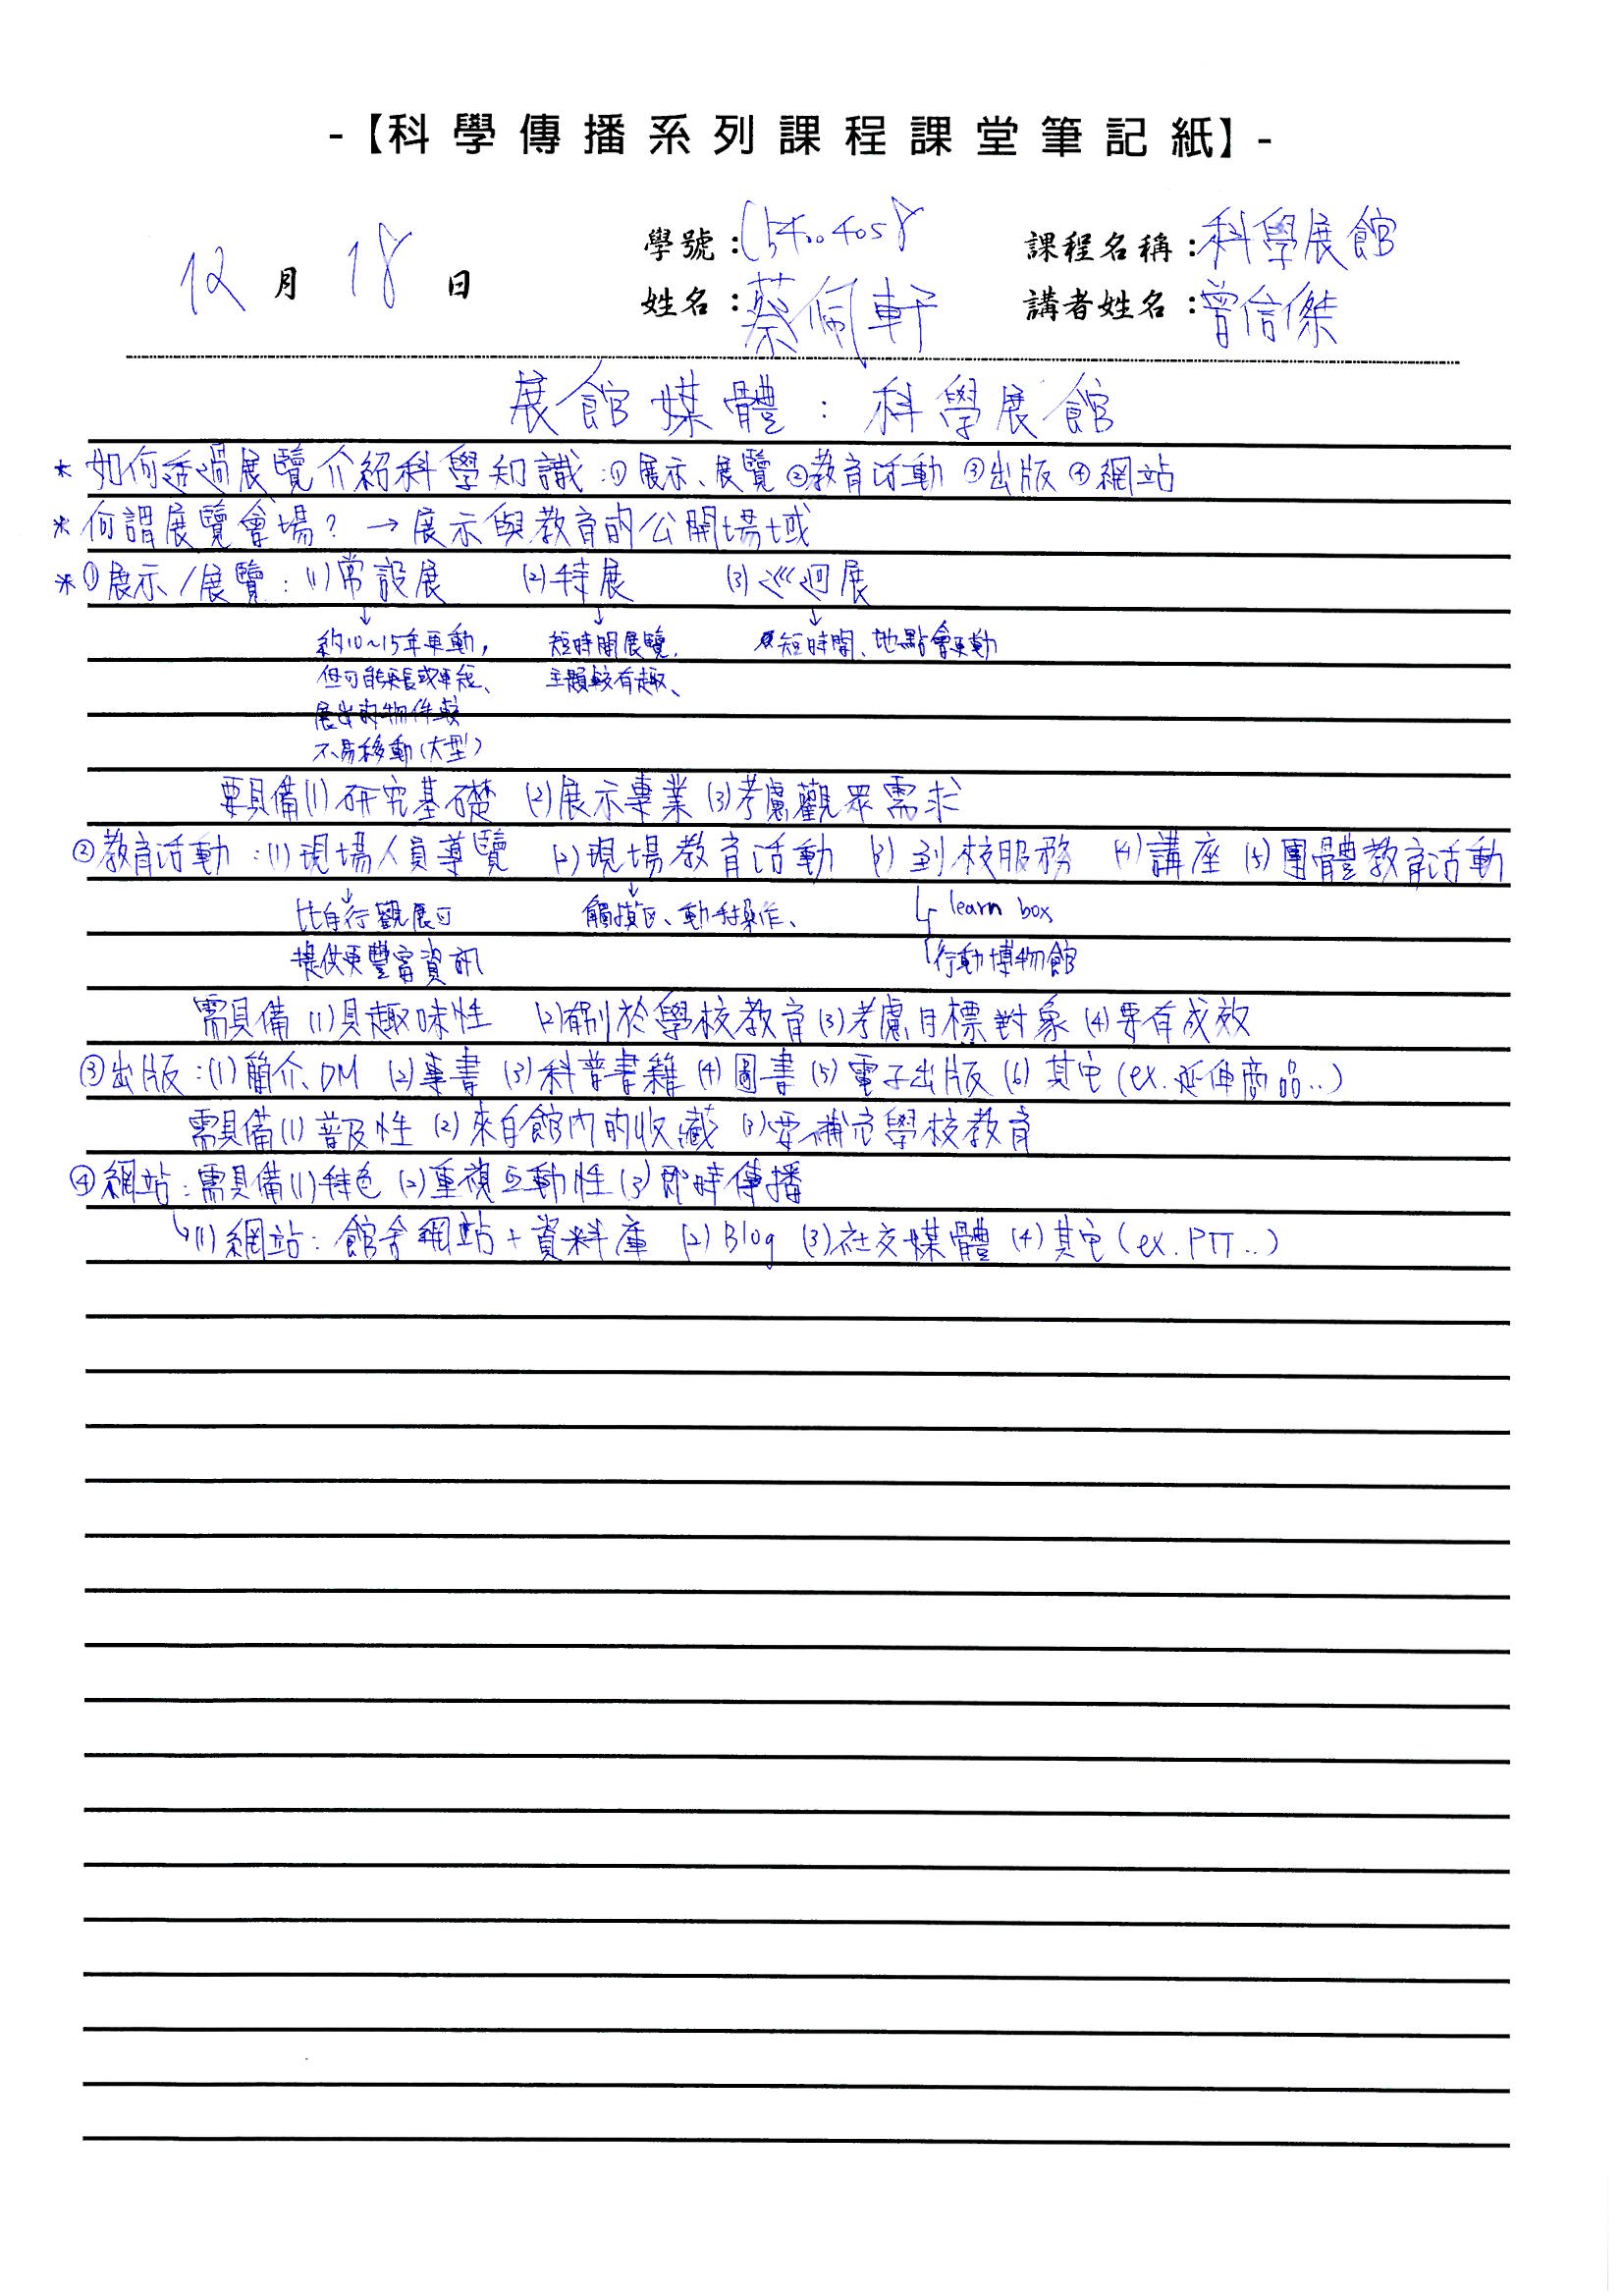 -【科學傳播系列課程課堂筆記紙】-
12月18日 學號：(54004058 課程名稱：科學展館
姓名：蔡佩軒 講者姓名：曾信傑
展館媒體：科學展館
* 如何透過展覽介紹科學知識：① 展示、展覽 ②教育活動 ③出版 ④網站
* 何謂展覽會場？→ 展示與教育的公開場域
* ①展示/展覽：(1)常設展 (2)特展 (3)巡迴展
↓ ↓ ↓
約10~15年更動， 短時間展覽、 短時間、地點會更動
但可能更長或更短、 主題較有趣、
展出的物件較
不易移動(大型)
要具備(1)研究基礎 (2)展示專業 (3)考慮觀眾需求
②教育活動：(1)現場人員導覽 (2)現場教育活動 (3)到校服務 (4)講座 (5)團體教育活動
比自行觀展可 觸摸區、動手操作、 ↳ learn box
提供更豐富資訊 行動博物館
需具備 (1)具趣味性 (2)有別於學校教育 (3)考慮目標對象 (4)要有成效
③出版：(1)簡介、DM (2)專書 (3)科普書籍 (4)圖書 (5)電子出版 (6)其它(ex.延伸商品..)
需具備(1)普及性 (2)來自館內的收藏 (3)要補充學校教育
④網站：需具備(1)特色 (2)重視互動性 (3)即時傳播
↳(1)網站：館舍網站+資料庫 (2)Blog (3)社交媒體 (4)其它(ex.PTT..)